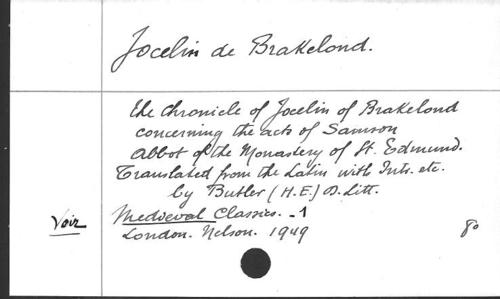 Jocelin de Brakelond.
the Chronicle of Jocelin of Brakelond
concerning the acts of Samson
Abbot of the Monastery of St. Edmund.
Translated from the Latin with Intr. etc.
by Butler (H.E.) D. Litt.
Voir Medieval Classics. - 1
London. Nelson. 1949
80